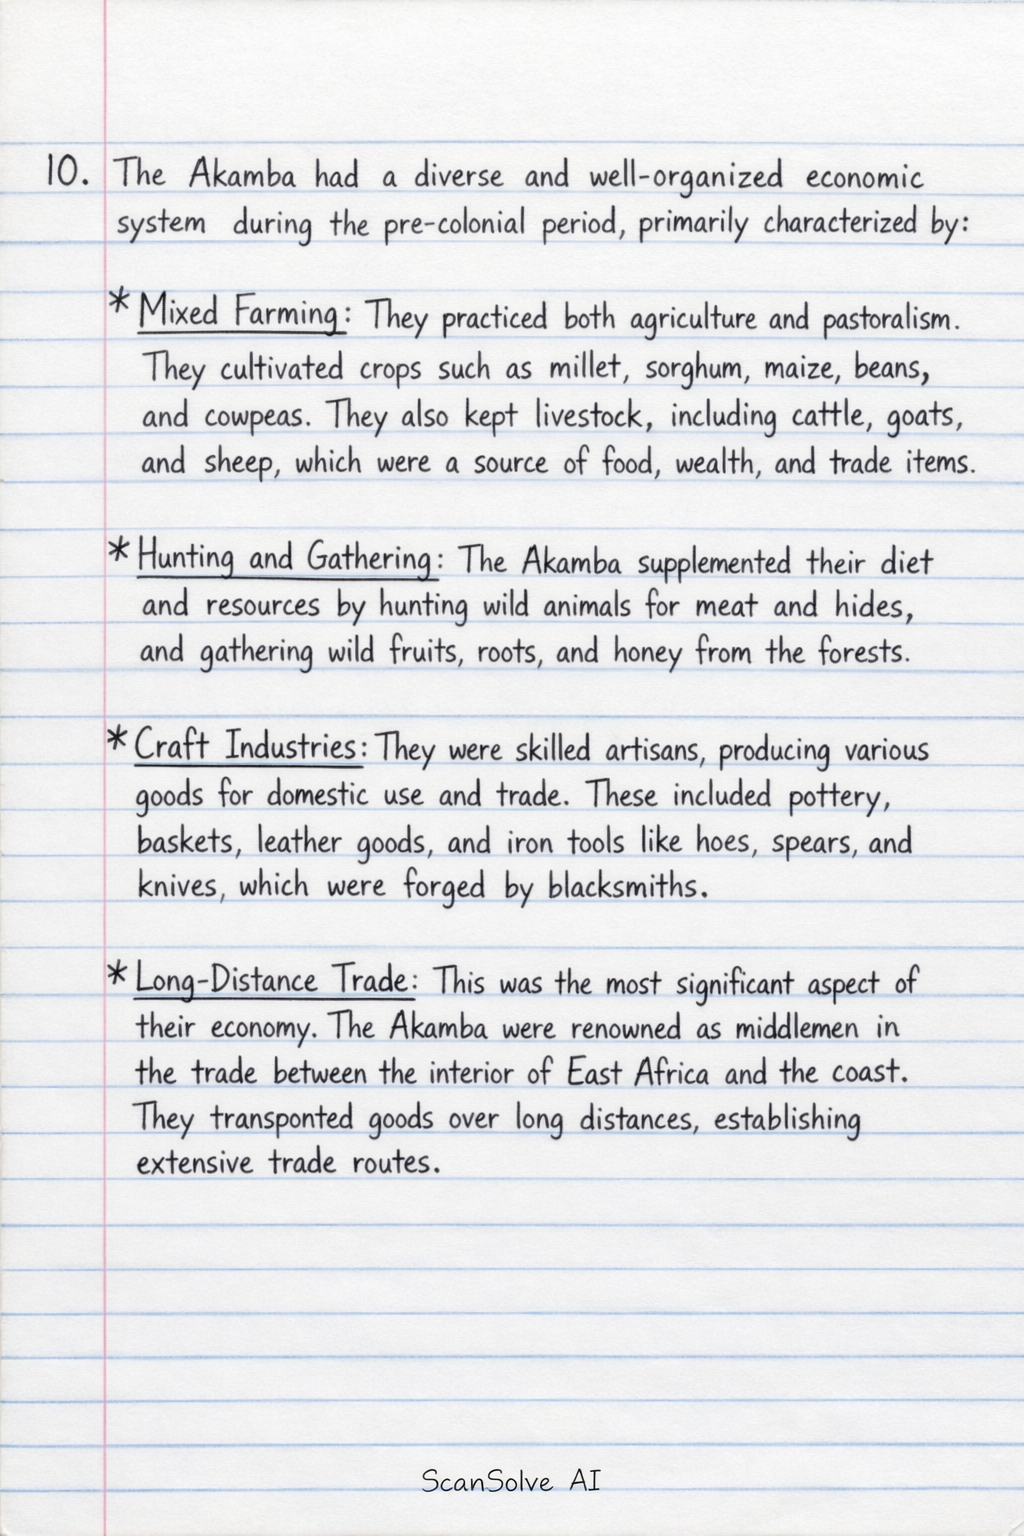 10. The Akamba had a diverse and well-organized economic
system during the pre-colonial period, primarily characterized by:
* Mixed Farming: They practiced both agriculture and pastoralism.
They cultivated crops such as millet, sorghum, maize, beans,
and cowpeas. They also kept livestock, including cattle, goats,
and sheep, which were a source of food, wealth, and trade items.
* Hunting and Gathering: The Akamba supplemented their diet
and resources by hunting wild animals for meat and hides,
and gathering wild fruits, roots, and honey from the forests.
* Craft Industries: They were skilled artisans, producing various
goods for domestic use and trade. These included pottery,
baskets, leather goods, and iron tools like hoes, spears, and
knives, which were forged by blacksmiths.
* Long-Distance Trade: This was the most significant aspect of
their economy. The Akamba were renowned as middlemen in
the trade between the interior of East Africa and the coast.
They transponted goods over long distances, establishing
extensive trade routes.
ScanSolve AI